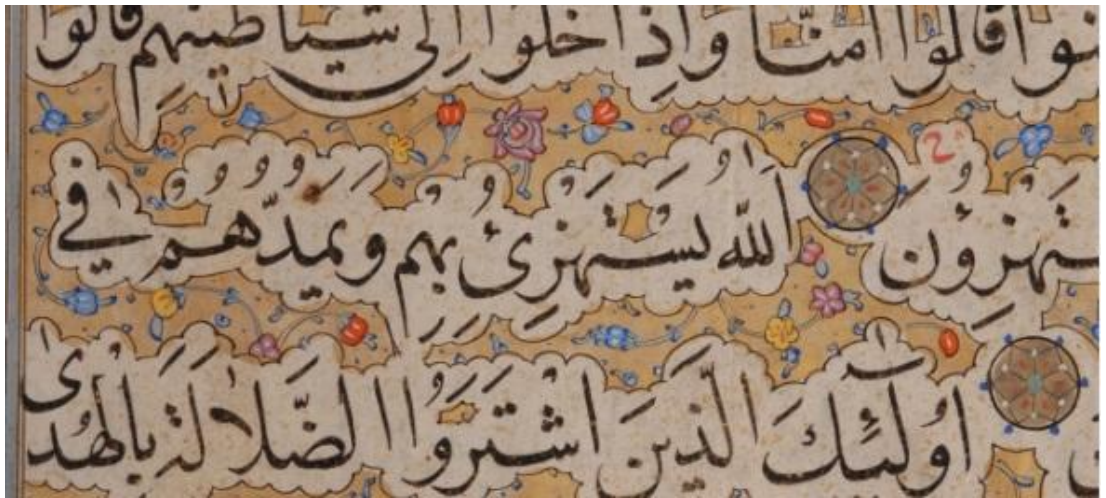 نوا قالوا امنّا وَاِذا خلَوا اِلى شيَاطينهِم قالوا
تَهزِؤنَ اَللّهُ يَسْتَهْزِئُ بِهِم وَيَمُدّهُم فى
اوُلٰئكَ الَّذينَ اشْتَرَوُا الضَّلالَةَ بِالهُدىٰ